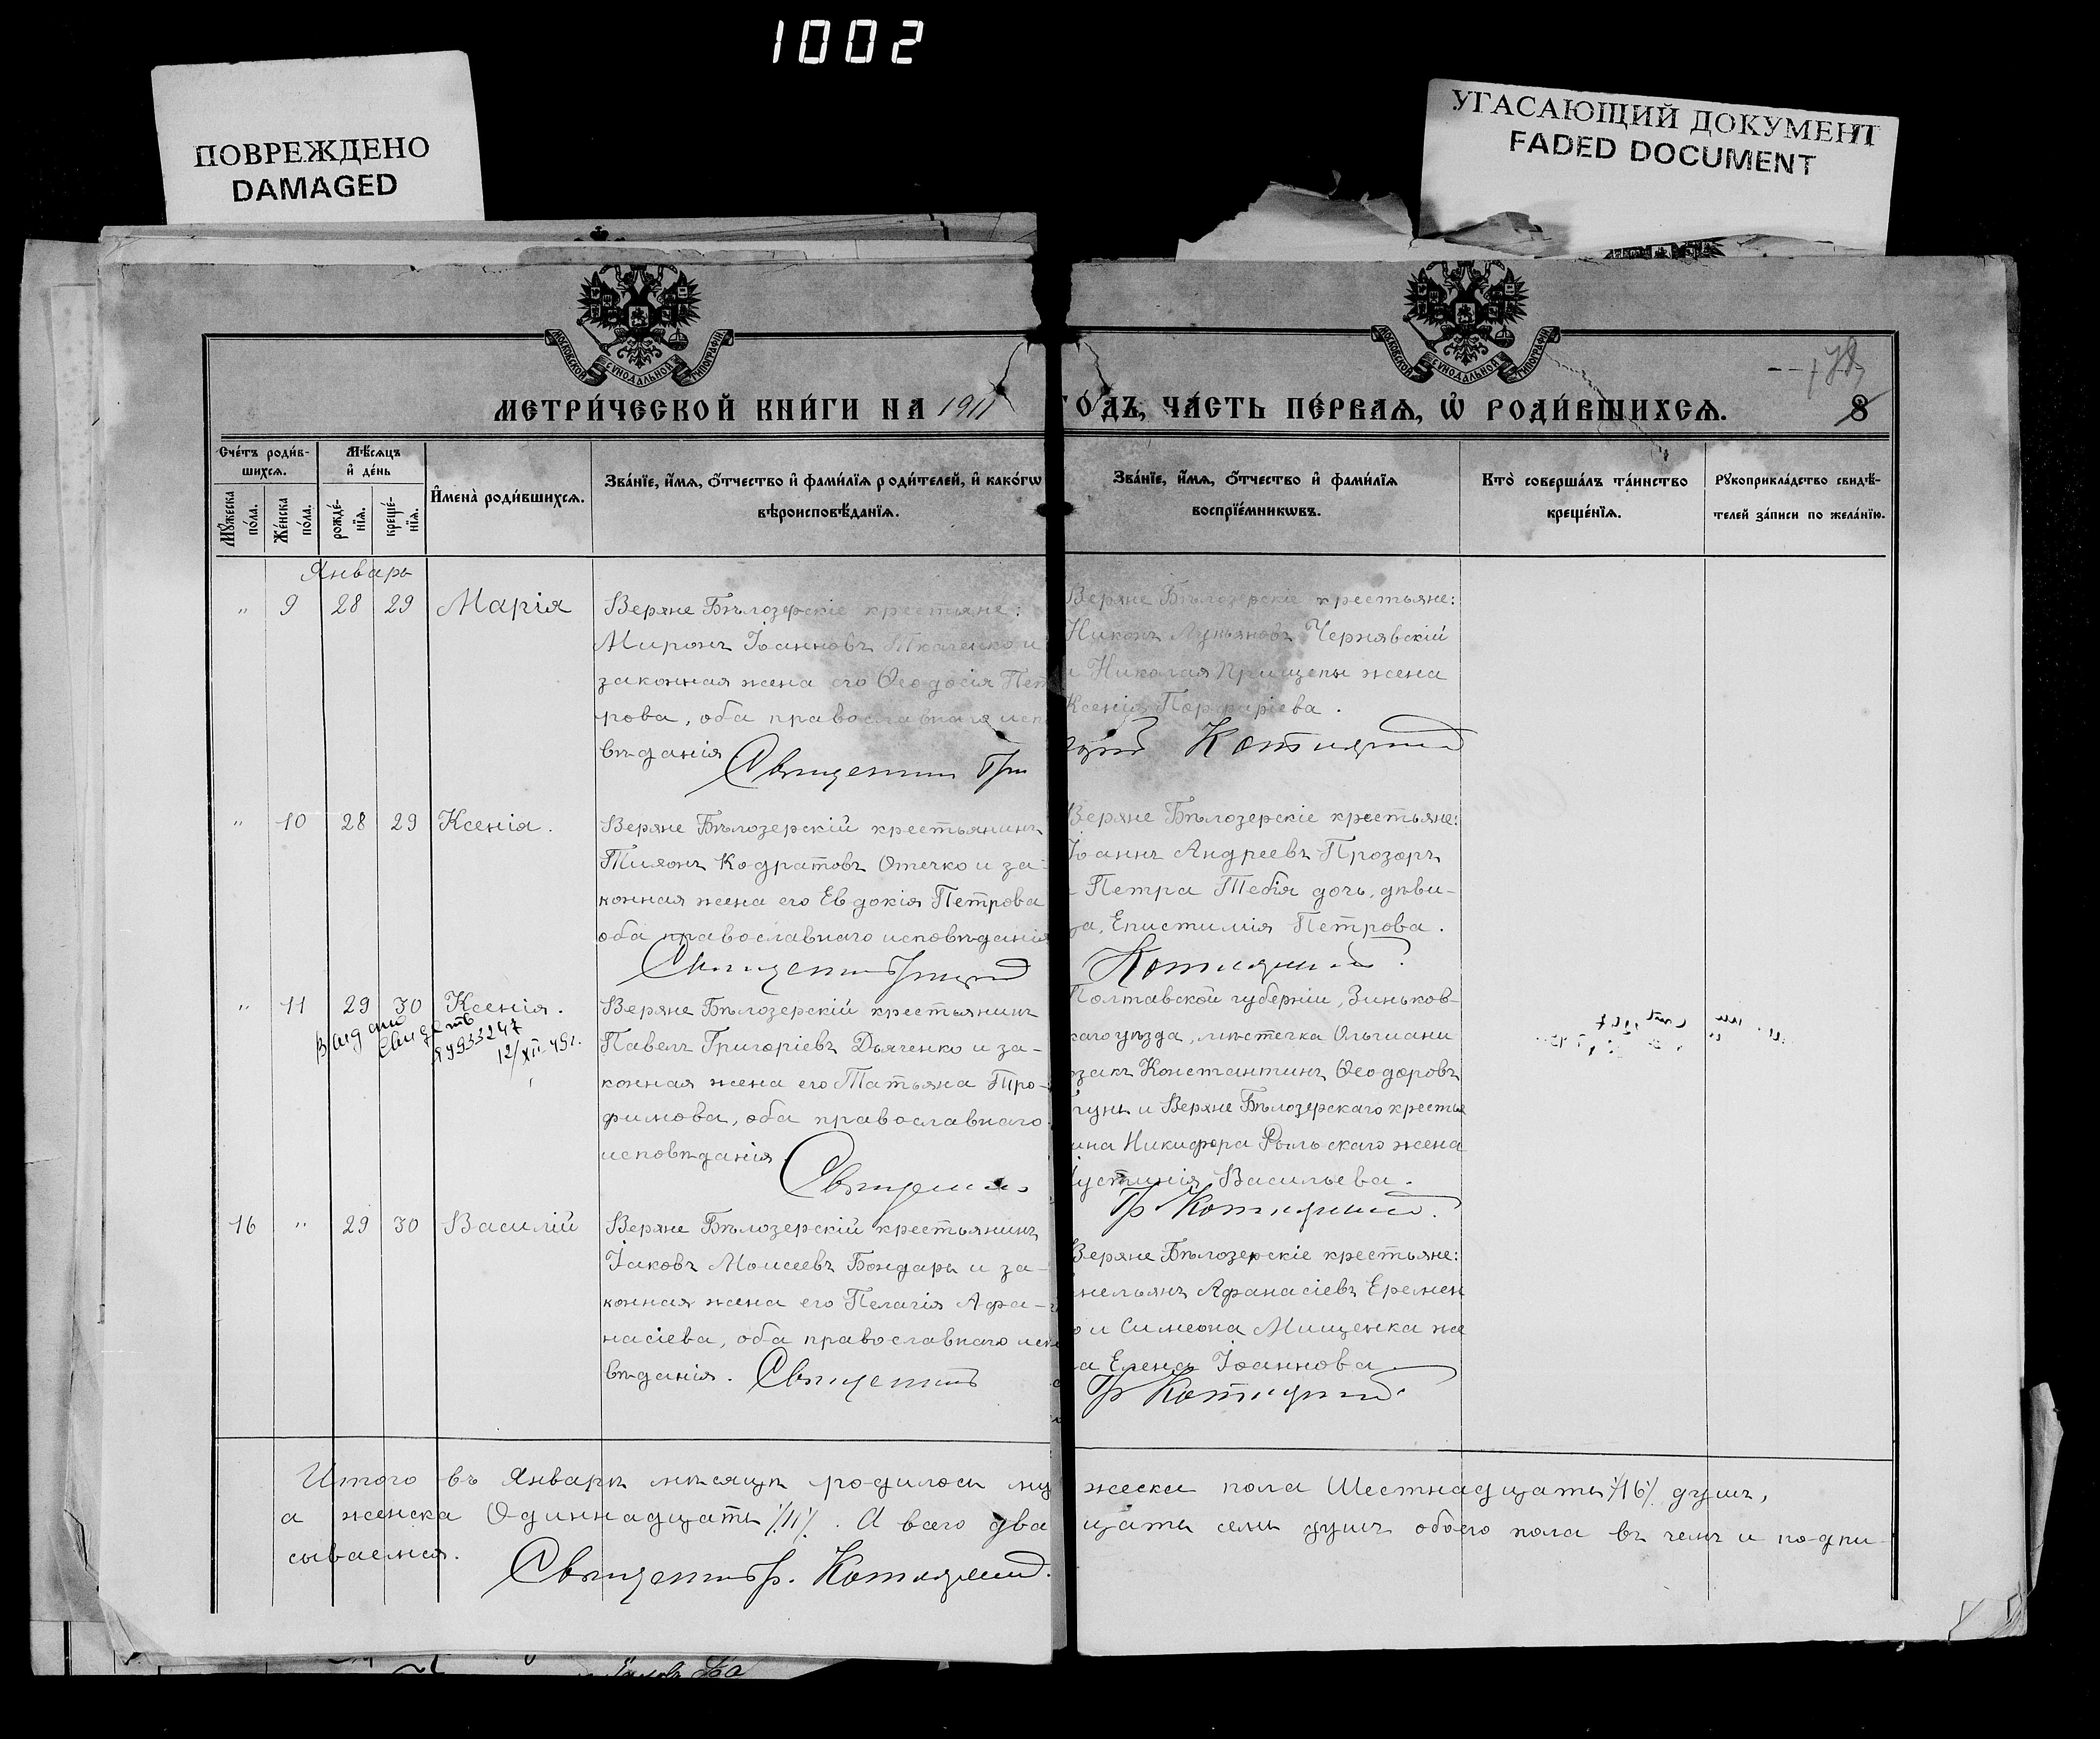 1002
ПОВРЕЖДЕНО
DAMAGED
УГАСАЮЩИЙ ДОКУМЕНТ
FADED DOCUMENT
МОСКОВСКОЙ СѴНОДАЛЬНОЙ ТИПОГРАФІИ
МОСКОВСКОЙ СѴНОДАЛЬНОЙ ТИПОГРАФІИ
МЕТРИ́ЧЕСКОЙ КНИ́ГИ НА 1911 ГО́ДЪ, ЧА́СТЬ ПЕ́РВАѦ, Ѡ҆ РОДИ́ВШИХСѦ. 8
Сче́тъ роди́в-
шихсѧ.
Мꙋжеска по́ла.
Же́нска по́ла.
Мѣ́сѧцъ
и҆ де́нь
рожде́-
нїѧ.
креще́-
нїѧ.
И҆мена̀ роди́вшихсѧ.
Зва́нїе, и҆́мѧ, о҆́тчество и҆ фами́лїѧ роди́телей, и҆ како́гѡ
вѣроисповѣ́данїѧ.
Зва́нїе, и҆́мѧ, о҆́тчество и҆ фами́лїѧ
воспрїе́мникѡвъ.
Кто̀ соверша́лъ та́инство
креще́нїѧ.
Рꙋкоприкла́дство свидѣ́-
телей за́писи по жела́нїю.
Январь
" 9 28 29 Марія
Веряне Бѣлозерскіе крестьяне:
Миронъ Іоанновъ Ткаченко и
законная жена его Ѳеодосія Пет
рова, оба православнаго исп
вѣданія
Священник Гри
Веряне Бѣлозерскіе крестьяне:
Никонъ Лукьяновъ Чернявскій
и Николая Прищепы жена
Ксенія Порфиріева.
" 10 28 29 Ксенія.
Веряне Бѣлозерскій крестьянинъ
Кодратовъ Отечко и за-
конная жена его Евдокія Петрова
оба православнаго исповѣданія
Священник
Веряне Бѣлозерскіе крестьяне:
Іоаннъ Андреевъ Прозоръ
Петра Тебія дочь, дѣви-
ца, Епистимія Петрова.
" 11 29 30 Ксенія.
Выдано
свидет
12/XII 49г.
Веряне Бѣлозерскій крестьянинъ
Павелъ Григоріевъ Дьяченко и за-
конная жена его Татьяна Тро-
фимова, оба православнаго
исповѣданія.
Священник
Полтавской губерніи, Зиньков-
каго уѣзда, мѣстечка
озакъ Константинъ Ѳеодоровъ
и Веряне Бѣлозерскаго крестья
ина Никифора жена
устинія Васильева.
16 " 29 30 Василій
Веряне Бѣлозерскій крестьянинъ
Іаковъ Моисеевъ Бондарь и за-
конная жена его Пелагія Афа-
насіева, оба православнаго испо
вѣданія. Священник
Веряне Бѣлозерскіе крестьяне:
мельянъ Афанасіевъ Еремен
о и Симеона Мищенка же
а Елена Іоаннова
Итого въ Январѣ мѣсяцѣ родилось му жеска пола Шестнадцать /16/ душъ,
а женска Одиннадцать /11/. А всего два цать семь душъ обоего пола въ чемъ и подпи-
сываемся.
Священник